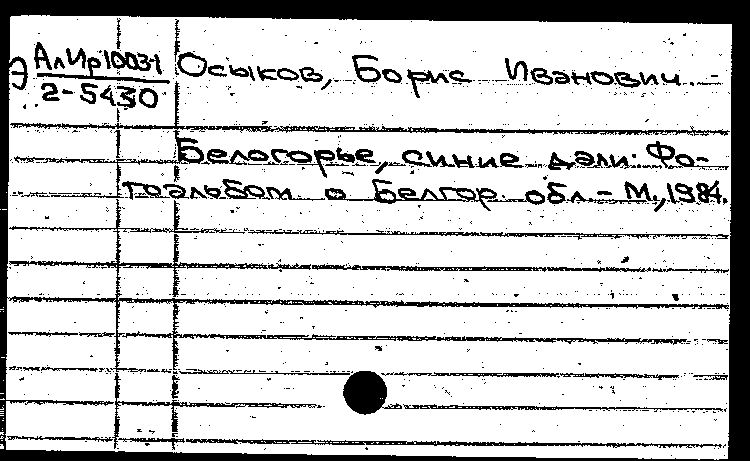 Э АлИр10031
2-5430
Осыков, Борис Иванович. -
Белогорье, синие дали: Фо-
тоальбом о Белгор. обл. - М., 1984.